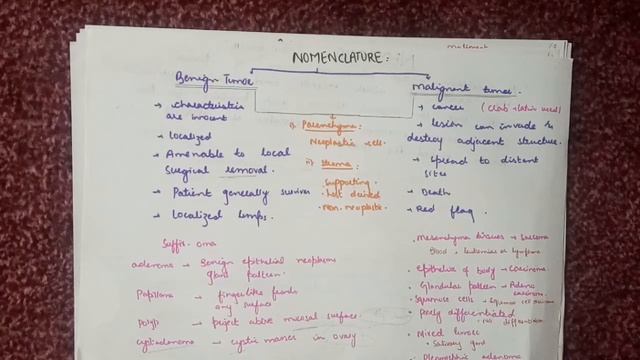 NOMENCLATURE:
Benign Tumor
→ characteristics
are innocent
→ localized
→ Amenable to local
surgical removal.
→ Patient generally survives
→ Localized lumps.
i) Parenchyma:
Neoplastic cell.
ii) Stroma:
supporting
host derived
non. neoplastic
malignant tumor.
→ cancer (crab
→ lesion can invade &
destroy adjacent structure.
→ spread to distant
sites
→ Death
→ Red flag.
Suffix. oma
adenoma → benign epithelial neoplasms
gland pattern.
Papilloma → fingerlike
any surface
Polyp → project above mucosal surface.
cystadenoma → cystic masses in ovary
mesenchyma tissues → Sarcoma
Blood → leukemias or lymphoma
epithelial of body → Carcinoma.
Glandular pattern → Adeno
carcinoma.
Squamous cells → squamous cell
differentiated
Mixed tumor
Salivary gland
Pleomorphic adenoma